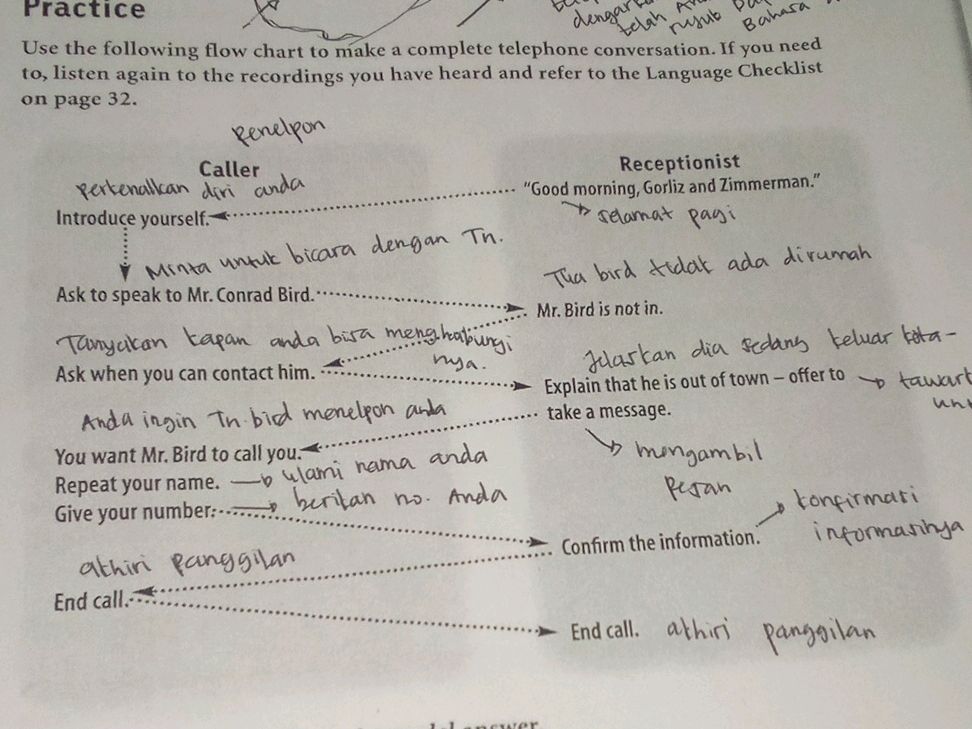 Practice
dengarkan
telah
rujuk
Bahasa
Use the following flow chart to make a complete telephone conversation. If you need
to, listen again to the recordings you have heard and refer to the Language Checklist
on page 32.
Penelpon
Caller
Receptionist
perkenalkan diri anda
"Good morning, Gorliz and Zimmerman."
Introduce yourself.
selamat pagi
Minta untuk bicara dengan Tn.
Tua bird tidak ada dirumah
Ask to speak to Mr. Conrad Bird.
Mr. Bird is not in.
Tanyakan kapan anda bisa menghabungi
nya.
Jelaskan dia sedang keluar kota-
Ask when you can contact him.
Explain that he is out of town – offer to
tawark
take a message.
Anda ingin Tn. bird menelpon anda
You want Mr. Bird to call you.
mengambil
pesan
Repeat your name.
ulami nama anda
Give your number.
berikan no. Anda
konfirmasi
informasinya
Confirm the information.
akhiri panggilan
End call.
End call.
akhiri panggilan